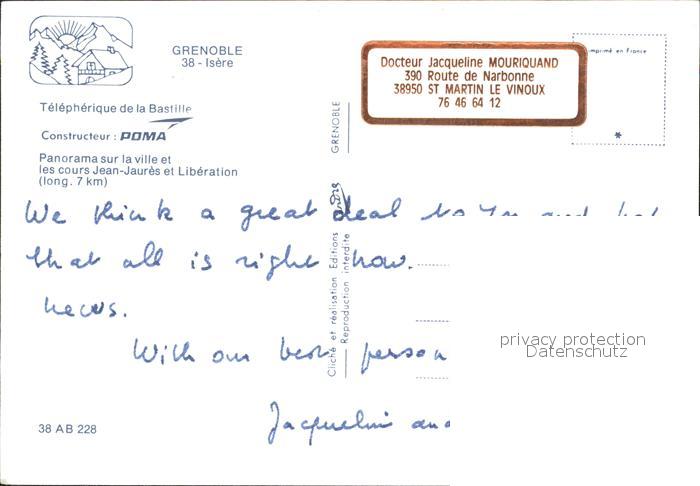 GRENOBLE
38 - Isère
Téléphérique de la Bastille
Constructeur : POMA
Panorama sur la ville et
les cours Jean-Jaurès et Libération
(long. 7 km)
Docteur Jacqueline MOURIQUAND
390 Route de Narbonne
38950 ST MARTIN LE VINOUX
76 46 64 12
imprimé en France
*
GRENOBLE
Cliché et réalisation Editions
Reproduction interdite
We think a great deal to You and
that all is right now.
news.
With our best person
Jacqueline and
38 AB 228
privacy protection
Datenschutz